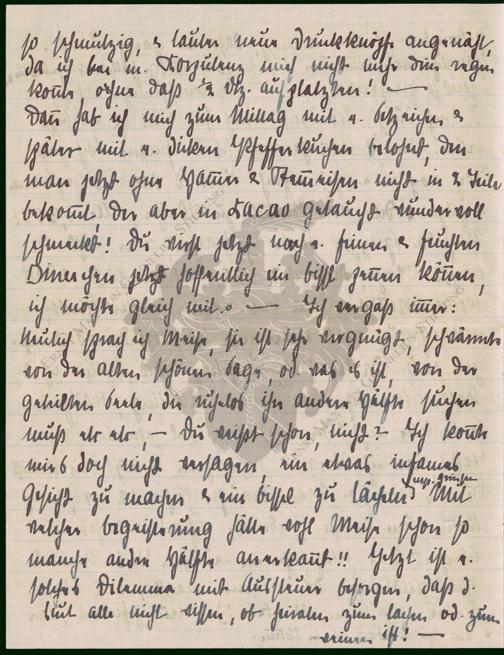 so schmutzig, & lauter neue Druckknöpfe angenäht,
da ich bei m. Korpulenz mich nicht mehr drin regen
konnte, ohne daß ½ dtz. aufplatzten! —
Dann hab ich mich zum Mittag mit e. &
später mit e. dicken Pfefferkuchen belohnt, den
man jetzt ohne Hammer & Stemmeisen nicht in 2 Teile
bekommt, der aber in Kacao getaucht wundervoll
schmeckt! Du wirst jetzt nach e. feinen &
Dinerchen jetzt hoffentlich ein bissl können,
ich möchte gleich mit. — Ich vergaß immer:
Neulich sprach ich Meise, sie ist sehr vergnügt, schwärmte
von der alten schönen Sage, od. was es ist, von der
geteilten Seele, die ruhelos ihre andere Hälfte suchen
muß etc etc, — Du weißt schon, nicht? — Ich konnte
mir's doch nicht versagen, ein etwas infames
Gesicht zu machen & ein bissl zu lächeln Mit
welcher Begeisterung hätte wohl Meise schon so
manche andre Hälfte anerkannt!! Jetzt ist e.
solches Dilemma mit Aussteuer besorgen, daß d.
Leut alle nicht wissen, ob heiraten zum lachen od. zum
weinen ist! —